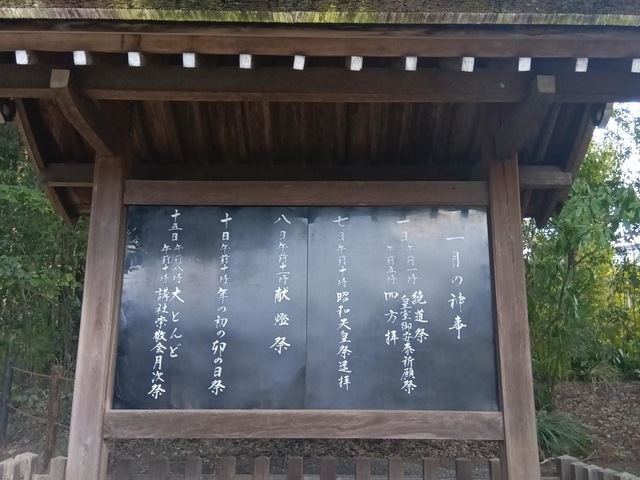 一月の神事
一日 午前一時 繞道祭
皇室御安泰祈願祭
午前五時 四方拝
七日 午前十時 昭和天皇祭遥拝
八日 午前十一時 献燈祭
十日 午前十時 年の初の卯の日祭
十五日 午前八時 大とんど
午前十時 講社崇敬会月次祭